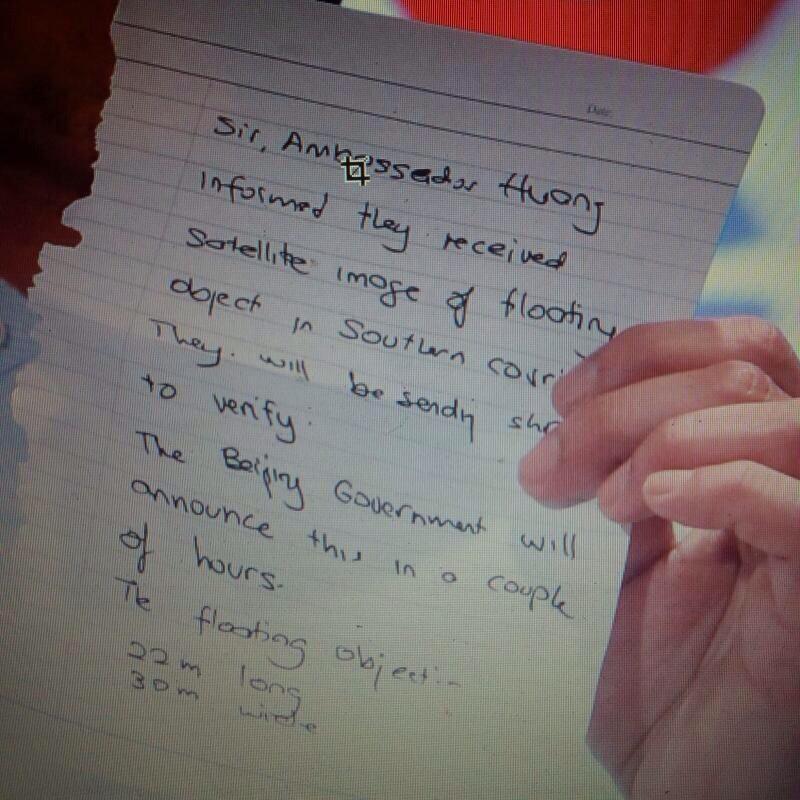 Date
Sir, Ambassador Huang
informed they received
Satellite image of floating
object in Southern corri
They will be sending
to verify.
The Beijing Government will
announce this in a couple
of hours.
The floating object:-
22m long
30m wide